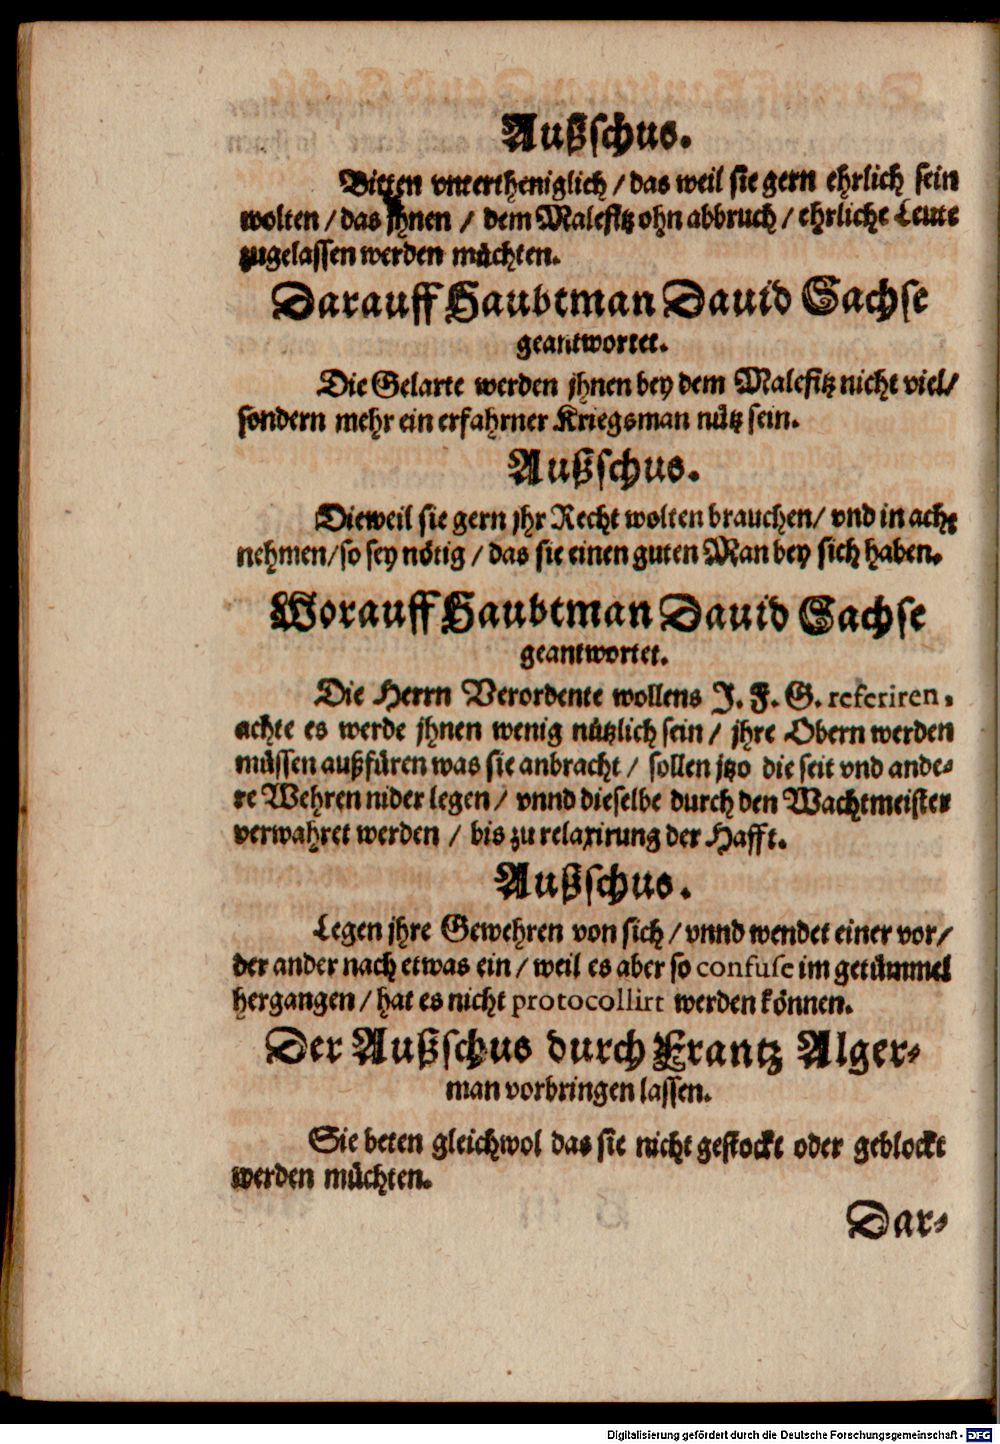 Außschus.
Bitten vntertheniglich / das weil sie gern ehrlich sein
wolten / das jhnen / dem Malefitz ohn abbruch / ehrliche Leute
zugelassen werden müchten.
Darauff Haubtman Dauid Sachse
geantwortet.
Die Gelarte werden jhnen bey dem Malefitz nicht viel/
sondern mehr ein erfahrner Kriegsman nütz sein.
Außschus.
Dieweil sie gern jhr Recht wolten brauchen/ vnd in acht
nehmen/ so sey nötig / das sie einen guten Man bey sich haben.
Worauff Haubtman Dauid Sachse
geantwortet.
Die Herrn Verordente wollens J. F. G. referiren,
achte es werde jhnen wenig nützlich sein / jhre Obern werden
müssen außfüren was sie anbracht / sollen jtzo die seit vnd ande-
re Wehren nider legen / vnnd dieselbe durch den Wachtmeister
verwahret werden / bis zu relaxirung der Hafft.
Außschus.
Legen jhre Gewehren von sich / vnnd wendet einer vor/
der ander nach etwas ein / weil es aber so confuse im getümmel
hergangen / hat es nicht protocollirt werden können.
Der Außschus durch Frantz Alger-
man vorbringen lassen.
Sie beten gleichwol das sie nicht gestockt oder geblockt
werden müchten.
Dar-
Digitalisierung gefördert durch die Deutsche Forschungsgemeinschaft - DFG